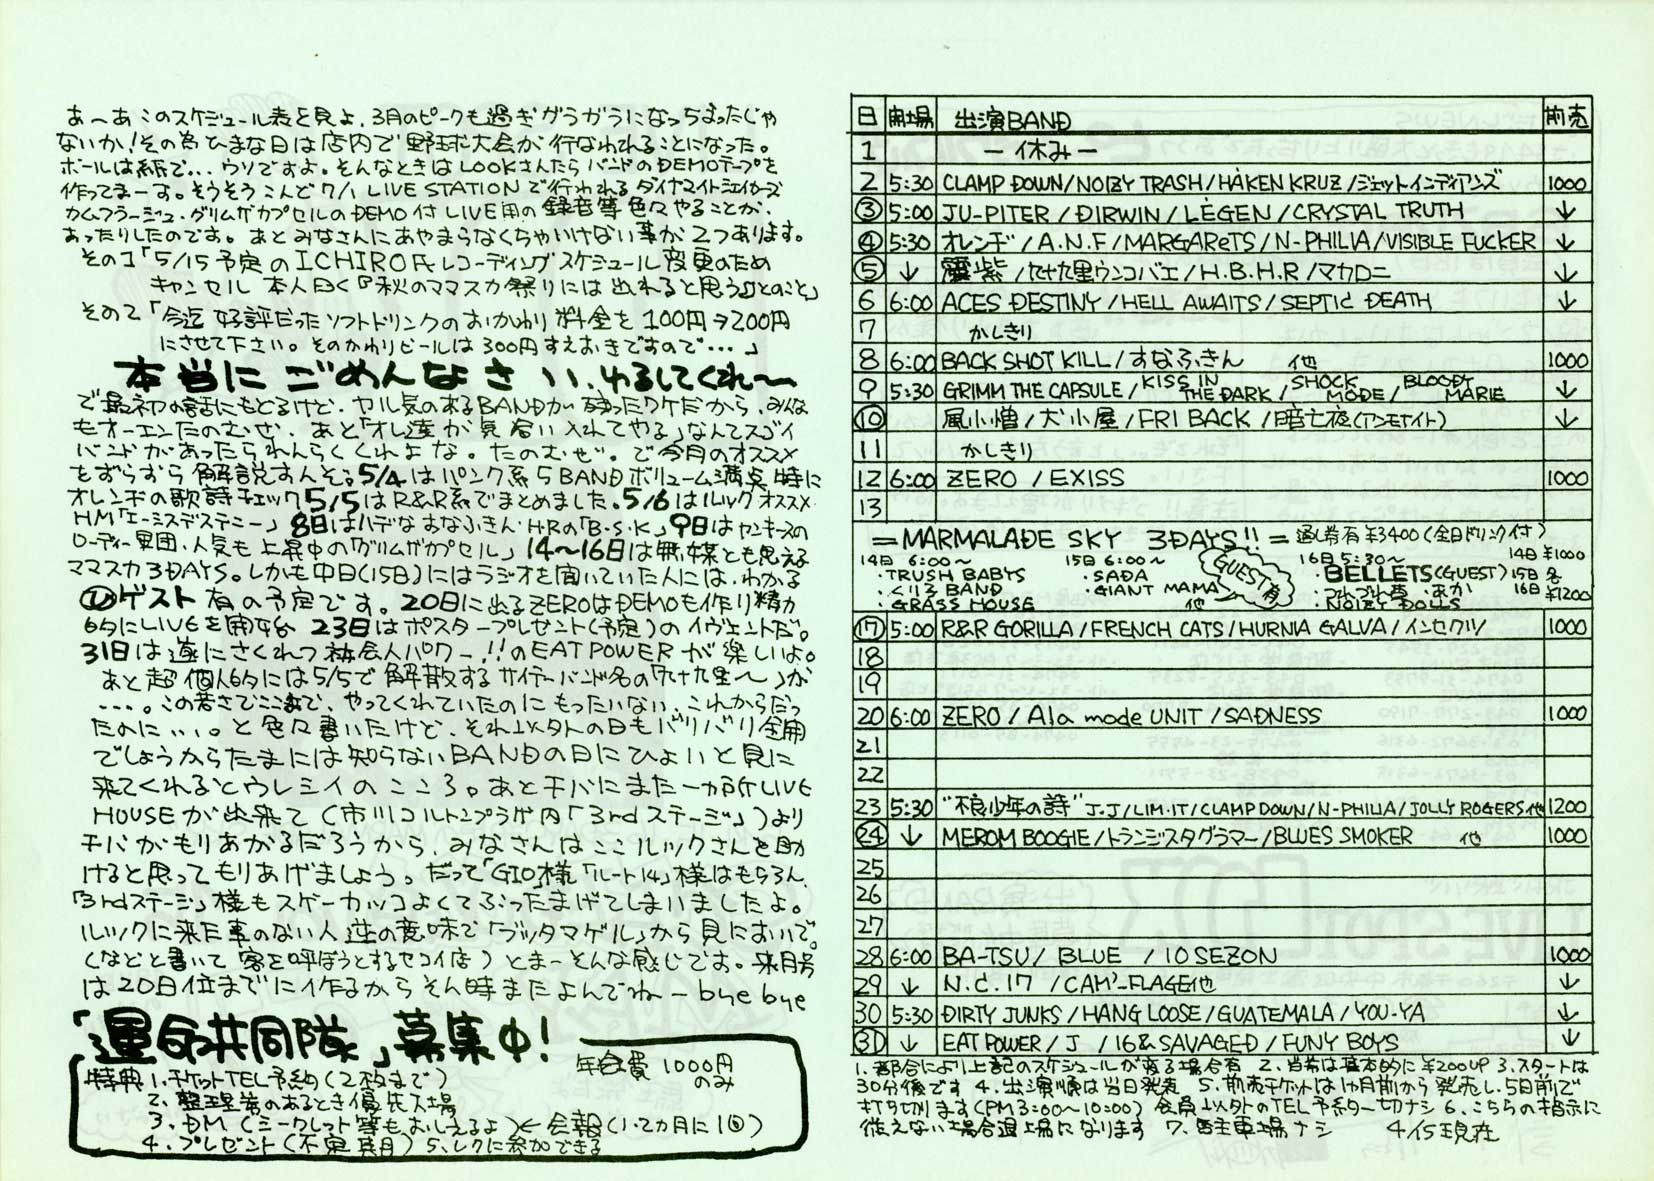 あ〜あこのスケジュール表を見よ、3月のピークも過ぎガラガラになっちまったじゃ
ないか！その為ひまな日は店内で野球大会が行なわれることになった。
ボールは紙で…ウソですよ。そんなときはLOOKさんたらバンドのDEMOテープを
作ってまーす。そうそうこんど7/1 LIVE STATIONで行われるダイナマイトシェイカーズ
カムフラージュ・グリムザカプセルのDEMO付LIVE用の録音等色々やることが、
あったりしたのです。あとみなさんにあやまらなくちゃいけない事が2つあります。
その1「5/15予定のICHIRO氏レコーディングスケジュール変更のため
キャンセル 本人曰く『秋のママスカ祭りには出れると思う』とのこと」
その2「今迄好評だったソフトドリンクのおかわり料金を100円→200円
にさせて下さい。そのかわりビールは300円すえおきですので…」
本当にごめんなさい、ゆるしてくれ〜
で最初の話にもどるけど、ヤル気のあるBANDが残ったワケだから、みんな
もオーエンたのむぜ、あと「オレ達が気合い入れてやる」なんてスゴイ
バンドがあったられんらくくれよな。たのむぜ。で今月のオススメ
をずらずら解説すんぞ。5/4はパンク系5BANDボリューム満点特に
オレンヂの歌詩チェック 5/5はR&R系でまとめました。5/6はルックオススメ
HM「エーシスデステニー」8日はハデなすなふきん・H・Rの「B・S・K」9日はヤンキースの
ローディー軍団、人気も上昇中の「グリムザカプセル」14〜16日は無謀とも思える
ママスカ3DAYS。しかも中日(15日)にはラジオを聞いていた人には、わかる
ゲスト有の予定です。20日に出るZEROはDEMOも作り精力
的にLIVEを開始 23日はポスタープレゼント(予定)のイヴェントだ。
31日は遂にさくれつ社会人パワー!!のEAT POWERが楽しいよ。
あと超個人的には5/5で解散するサイテーバンド名の「九十九里〜」が
…。この若さでここまで、やってくれていたのにもったいない、これからだっ
たのに…。と色々書いたけど、それ以外の日もバリバリ全開
でしょうからたまには知らないBANDの日にひょいと見に
来てくれるとウレシイのこころ。あと千バにまた一ヵ所LIVE
HOUSEが出来て(市川コルトンプラザ内「3rdステージ」)より
千バがもりあがるだろうから、みなさんはここルックさんを助
けると思ってもりあげましょう。だって「GIO」様「ルート14」様はもちろん、
「3rdステージ」様もスゲーカッコよくてぶったまげてしまいましたよ。
ルックに来た事のない人逆の意味で「ブッタマゲル」から見においで。
(などと書いて客を呼ぼうとするセコイ店)とまーそんな感じです。来月号
は20日位までに作るからそん時またよんでねーbye bye
「運命共同隊」募集中！
年会費 1000円のみ
特典 1、チケットTEL予約(2枚まで)
2、整理券のあるとき優先入場
3、DM(シークレット等もおしえるよ)←会報(1・2カ月に1回)
4、プレゼント(不定期) 5、レクに参加できる
日 開場 出演BAND 前売
1 ー休みー
2 5:30 CLAMP DOWN/NOIZY TRASH/HÄKEN KRUZ/ジェットインディアンズ 1000
③ 5:00 JU-PITER/DIRWIN/LÉGEN/CRYSTAL TRUTH ↓
④ 5:30 オレンヂ/A.N.F/MARGAReTS/N-PHILIA/VISIBLE FUCKER ↓
⑤ ↓ 震紫/九十九里ウンコバエ/H.B.H.R/マカロニ ↓
6 6:00 ACES DESTINY/HELL AWAITS/SEPTIC DEATH ↓
7 かしきり
8 6:00 BACK SHOT KILL/すなふきん 他 1000
9 5:30 GRIMM THE CAPSULE/KISS IN THE DARK/SHOCK MODE/BLOODY MARIE ↓
⑩ 風小憎/犬小屋/FRI BACK/暗亡夜(アンモナイト) ↓
11 かしきり
12 6:00 ZERO/EXISS 1000
13
=MARMALADE SKY 3DAYS!!= 通し券有¥3400(全日ドリンク付)
14日 6:00〜
・TRUSH BABYS
・くりスBAND
・GRASS HOUSE
15日 6:00〜
・SADA
・GIANT MAMA
他
GUEST有
16日 5:30〜
・BELLETS(GUEST)
・つれづれ草 ・あか
・NOIZY DOLLS
14日 ¥1000
15日 各
16日 ¥1200
⑰ 5:00 R&R GORILLA/FRENCH CATS/HURNIA GALVA/インセクツ 1000
18
19
20 6:00 ZERO/Ala mode UNIT/SADNESS 1000
21
22
23 5:30 "不良少年の詩" J.J/LIM.IT/CLAMP DOWN/N-PHILIA/JOLLY ROGERS他 1200
㉔ ↓ MEROM BOOGIE/トランジスタグラマー/BLUES SMOKER 他 1000
25
26
27
28 6:00 BA-TSU/BLUE/10 SEZON 1000
29 ↓ N.C.17/CAM'-FLAGE他 ↓
30 5:30 DIRTY JUNKS/HANG LOOSE/GUATEMALA/YOU-YA ↓
㉛ ↓ EAT POWER/J/16&SAVAGED/FUNY BOYS ↓
1、都合により上記のスケジュールが変る場合有 2、当券は基本的に¥200UP 3、スタートは
30分後です 4、出演順は当日発表 5、前売チケットは1ヵ月前から発売し、5日前で
打ち切ります(PM3:00〜10:00) 会員以外のTEL予約一切ナシ 6、こちらの指示に
従えない場合退場になります 7、駐車場ナシ 4/15現在